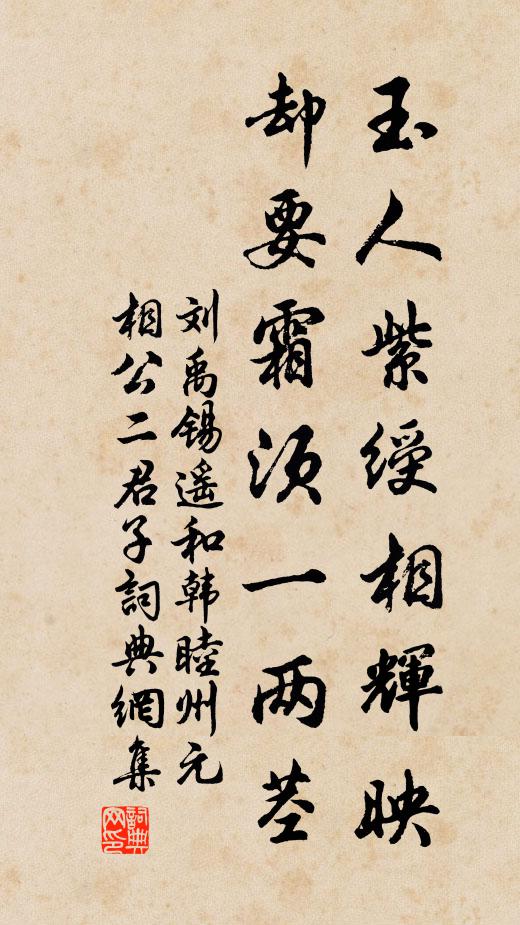 玉人紫綬相輝映
却要霜须一两茎
刘禹锡遥和韩睦州元
相公二君子詞典網集
詞典网印